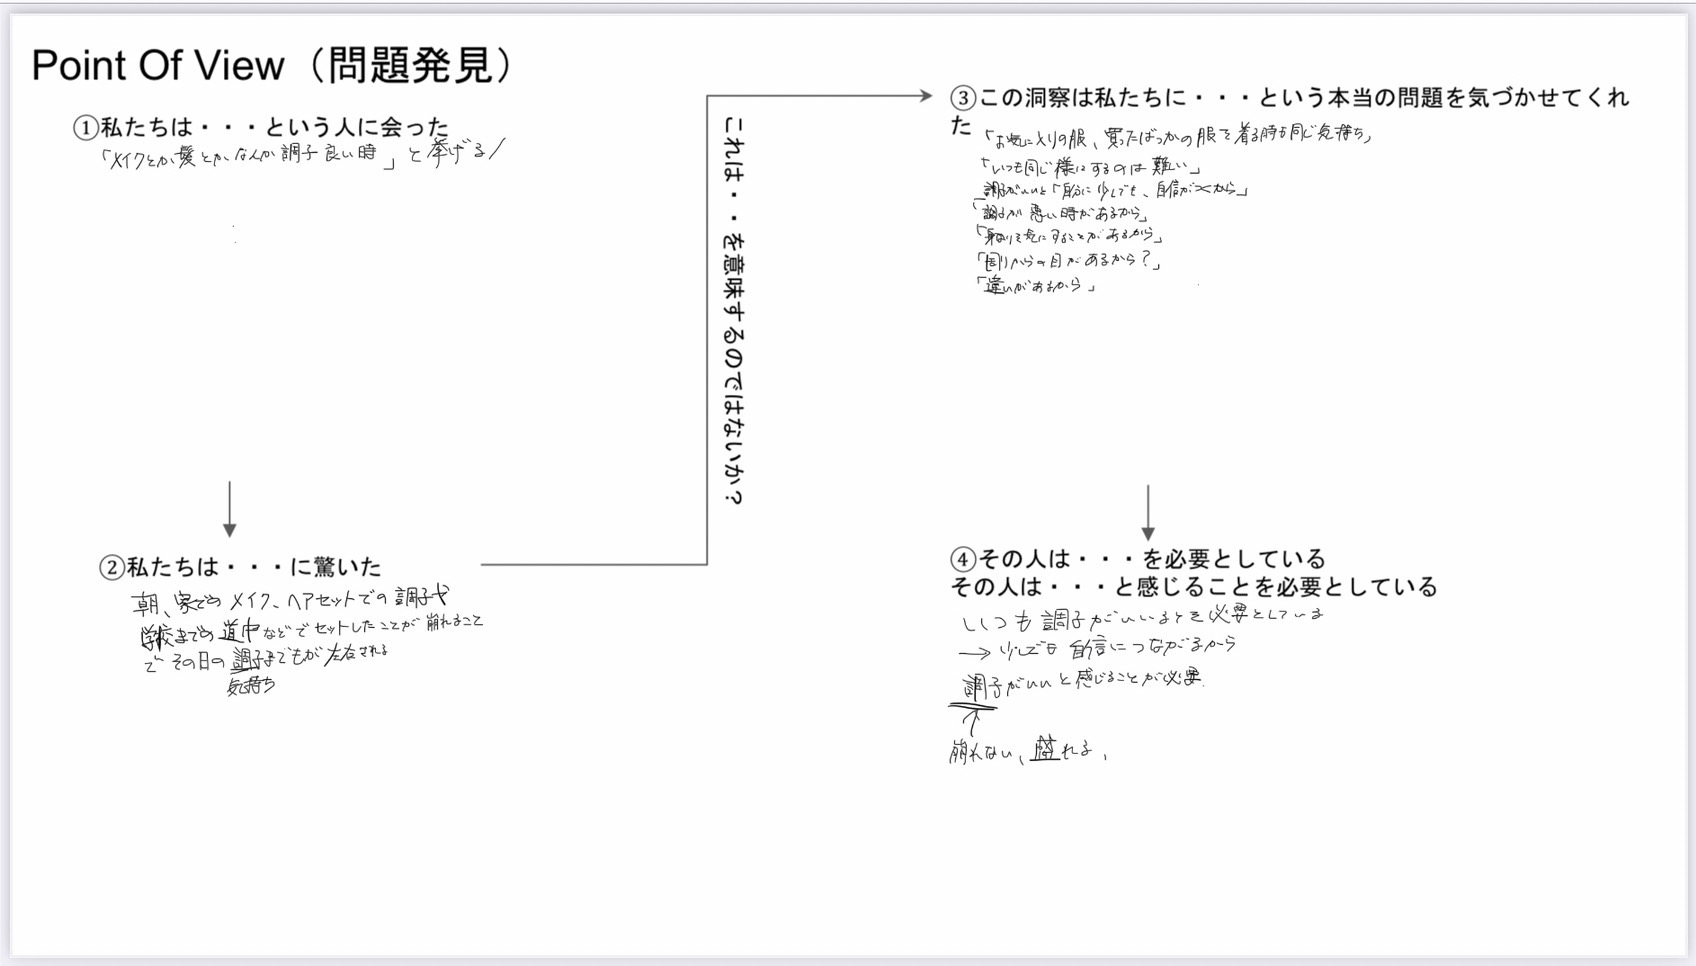 Point Of View（問題発見）
①私たちは・・・という人に会った
「メイクとか髪とかなんか調子良い時」と挙げる
②私たちは・・・に驚いた
朝、家でのメイク、ヘアセットでの調子や
学校までの道中などでセットしたことが崩れること
で その日の調子までもが左右される
気持ち
これは・・を意味するのではないか？
③この洞察は私たちに・・・という本当の問題を気づかせてくれ
た
「お気に入りの服、買ったばっかの服を着る時も同じ気持ち」
「いつも同じ様にするのは難しい」
調子がいいと「自分に少しでも、自信がつくから」
「調子が悪い時があるから」
「身なりを気にすることがあるから」
「周りからの目があるから？」
「違いがあるから」
④その人は・・・を必要としている
その人は・・・と感じることを必要としている
いつも調子がいいを必要としている
→少しでも自信につながるから
調子がいいと感じることが必要.
↑
崩れない、盛れる、